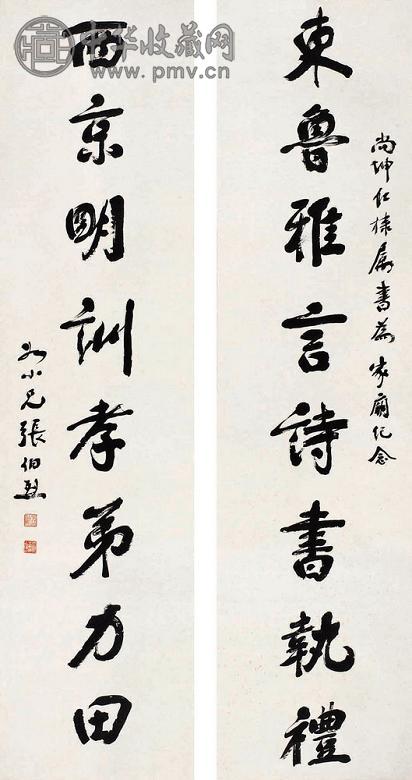 中华收藏网
www.pmv.cn
尚坤仁棣屬書為家廟紀念
東魯雅言詩書執禮
西京明訓孝弟力田
如小兄張伯